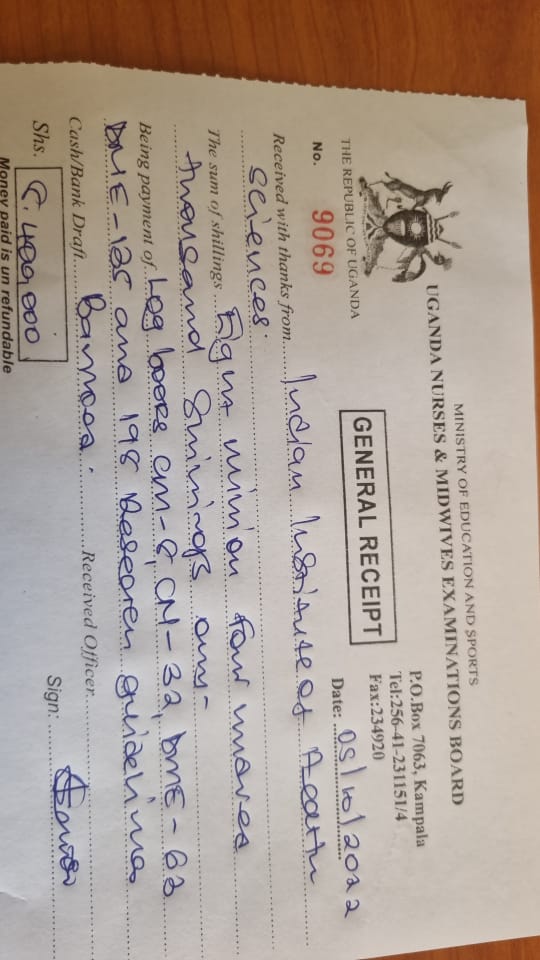 MINISTRY OF EDUCATION AND SPORTS
UGANDA NURSES & MIDWIVES EXAMINATIONS BOARD
P.O.Box 7063, Kampala
Tel:256-41-231151/4
Fax:234920
THE REPUBLIC OF UGANDA
GENERAL RECEIPT
No. 9069
Date: 05/10/2022
Received with thanks from Indian Institute of Health
Sciences.
The sum of shillings Eight million four
thousand Shillings only-
Being payment of Log books CM-8, CN-32, DME-63
DME-125 and 198 Research guidelines
Cash/Bank Draft Received Officer
Shs. 8,400,000 Sign:
Money paid is un refundable